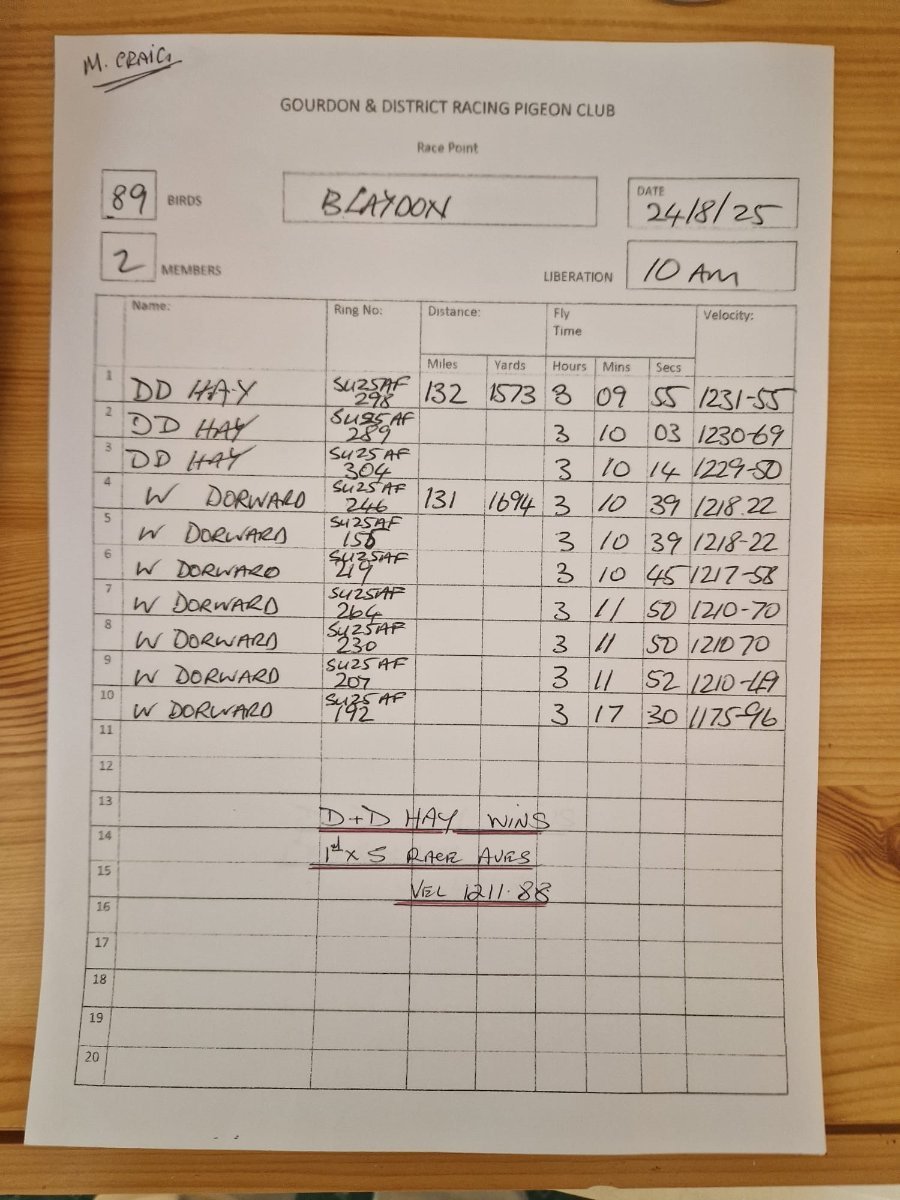 M. CRAIG
GOURDON & DISTRICT RACING PIGEON CLUB
Race Point
89 BIRDS BLAYDON DATE 24/8/25
2 MEMBERS LIBERATION 10 AM
Name: Ring No: Distance: Fly Time Velocity:
Miles Yards Hours Mins Secs
1 DD HAY SU25AF 298 132 1573 3 09 55 1231-55
2 DD HAY SU25AF 289 3 10 03 1230-69
3 DD HAY SU25AF 304 3 10 14 1229-50
4 W DORWARD SU25AF 246 131 1694 3 10 39 1218.22
5 W DORWARD SU25AF 155 3 10 39 1218-22
6 W DORWARD SU25AF 219 3 10 45 1217-58
7 W DORWARD SU25AF 264 3 11 50 1210-70
8 W DORWARD SU25AF 230 3 11 50 1210 70
9 W DORWARD SU25AF 207 3 11 52 1210-49
10 W DORWARD SU25AF 192 3 17 30 1175-96
11
12
13 D+D HAY WINS
14 1st x 5 RACE AVES
15 VEL 1211.88
16
17
18
19
20